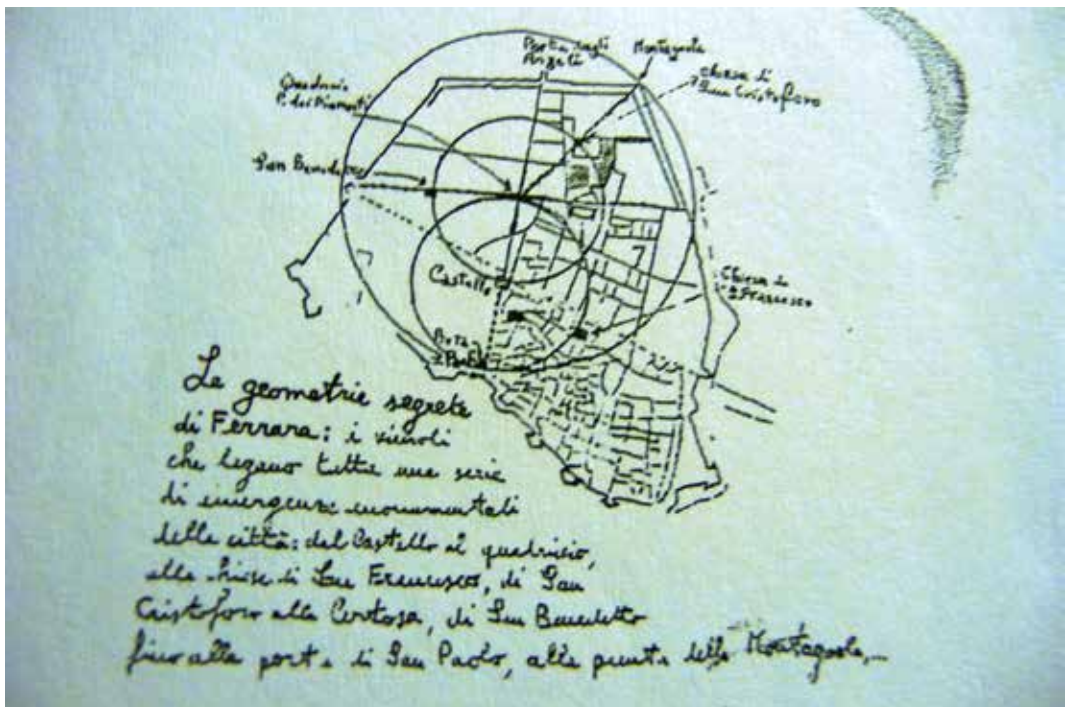 Porta degli
Angeli
Montagnola
chiesa di
San Cristoforo
Quadrivio
P. dei Diamanti
San Benedetto
Castello
Chiesa di
S. Francesco
Porta
S. Paolo
Le geometrie segrete
di Ferrara: i vincoli
che legano tutta una serie
di emergenze monumentali
della città: dal Castello al quadrivio,
alle chiese di San Francesco, di San
Cristoforo alla Certosa, di San Benedetto
fino alla porta di San Paolo, alla punta della Montagnola,...